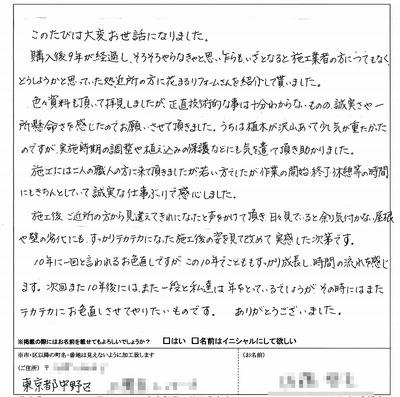 このたびは大変お世話になりました。
購入後9年が経過し、そろそろやらなきゃと思い乍らもいざとなると施工業者の方につてもなく
どうしようかと思っていた処近所の方に花まるリフォームさんを紹介して貰いました。
色々資料も頂いて拝見しましたが、正直技術的な事は十分わからないものの、誠実さや一
所懸命さを感じたのでお願いさせて頂きました。うちは植木が沢山あって少し気が重たかった
のですが、実施時期の調整や植え込みの保護などにも気を遣って頂き助かりました。
施工には二人の職人の方に来て頂きましたが若い方でしたが作業の開始、終了、休憩等の時間
にもきちんとしていて誠実な仕事ぶりで感心しました。
施工後、ご近所の方から見違えてきれいになったと声をかけて頂き、日々見ていると余り気付かない屋根
や壁の劣化にも、すっかりテカテカになった施工後の姿を見て改めて実感した次第です。
10年に一回と言われるお色直しですがこの10年で子どももすっかり成長し、時間の流れを感じ
ます。次回また10年後には、また一段と私達は年をとっているでしょうがその時にはまた
テカテカにお色直しさせてやりたいものです。 ありがとうございました。
※掲載の際にはお名前を載せてもよろしいでしょうか? □はい □名前はイニシャルにして欲しい
※市・区以降の町名・番地は見えないように加工致します
(ご住所) 〒
(お名前)
東京都中野区